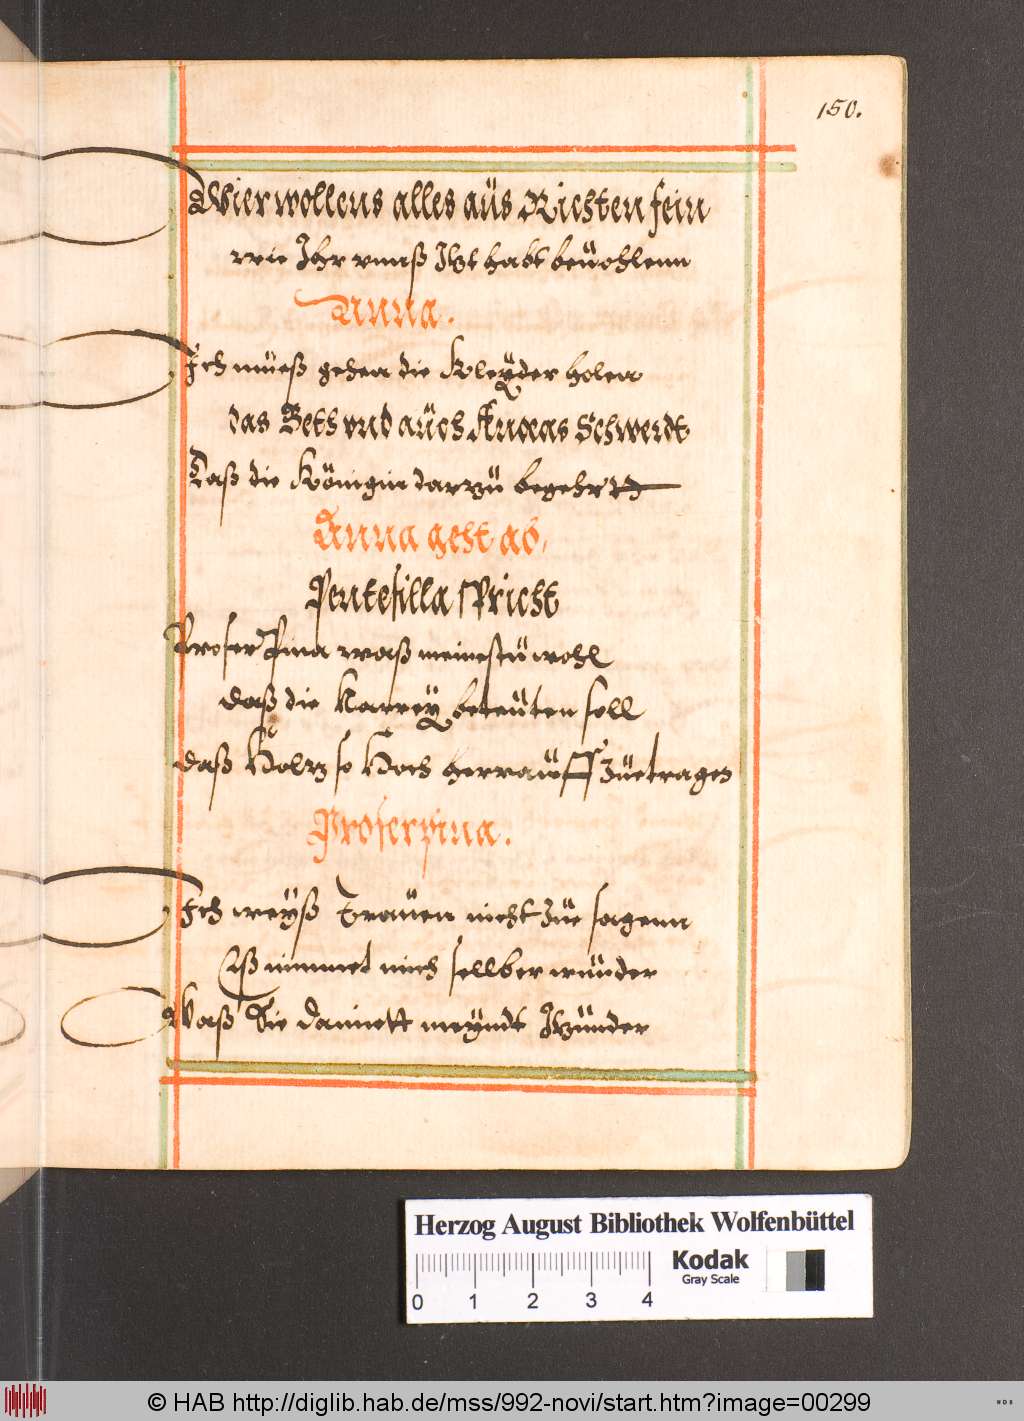 150.
Wier wollens alles aüs Richten fein
wie Ihr vnnß Itzt habt beuohlenn
Anna.
Ich müeß gehen die Kleÿder holen
das Beth vnd aüch Aneas Schwerdt
Daß die Königin darzü begehrtt
Anna geht ab,
Pentesilla spricht
Proserpina waß meinestü wohl
daß die Narreÿ beteüten soll
daß Holtz so Hoch herraüff züetragen
Proserpina.
Ich weÿß Traüen nicht züe sagenn
Eß nimmet mich sellber wünder
Waß Sie damett meÿndt Itzünder
Herzog August Bibliothek Wolfenbüttel
Kodak
Gray Scale
0 1 2 3 4
© HAB http://diglib.hab.de/mss/992-novi/start.htm?image=00299